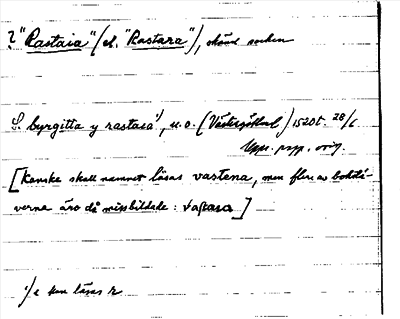 ? "Rastaia" (el. "Rastara"), okänd socken
S. byrgitta y rastasa¹⁾, u.o. (Västergötland) 1520t. 28/6
Upps. papp. orig.
[Kanske skall namnet läsas vastena, men flera av bokstä-
verna äro då missbildade: vastasa]
¹⁾ s kan läsas r